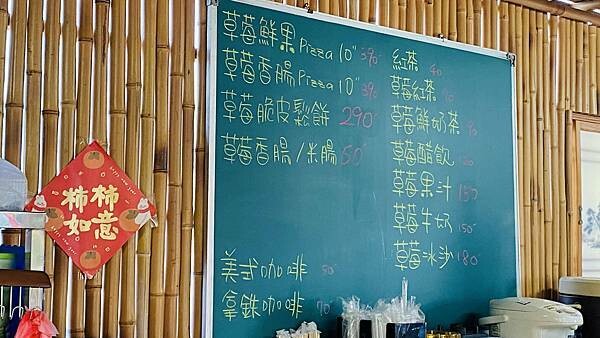 草莓鮮果Pizza 10" 390-
草莓香腸Pizza 10" 390
草莓脆皮鬆餅 290-
草莓香腸/米腸 50-
美式咖啡
拿鉄咖啡
紅茶 40
草莓紅茶
草莓鮮奶茶
草莓醋飲
草莓果汁 150
草莓牛奶 150-
草莓冰沙 180-
柿柿
如意